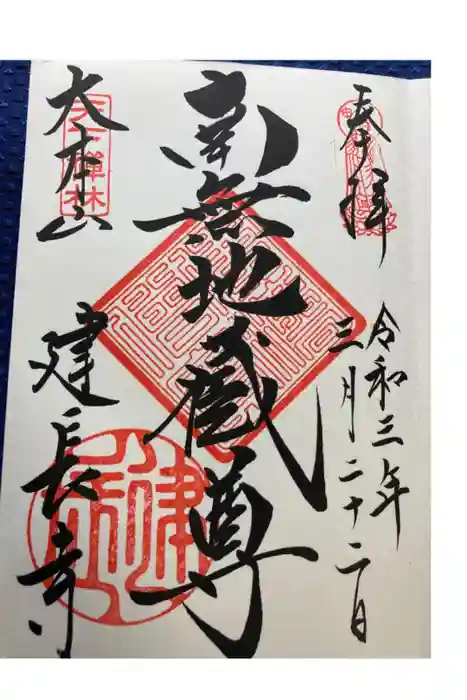 奉拝
令和三年
三月二十二日
南無地蔵尊
大本山
天下禅林
建長寺